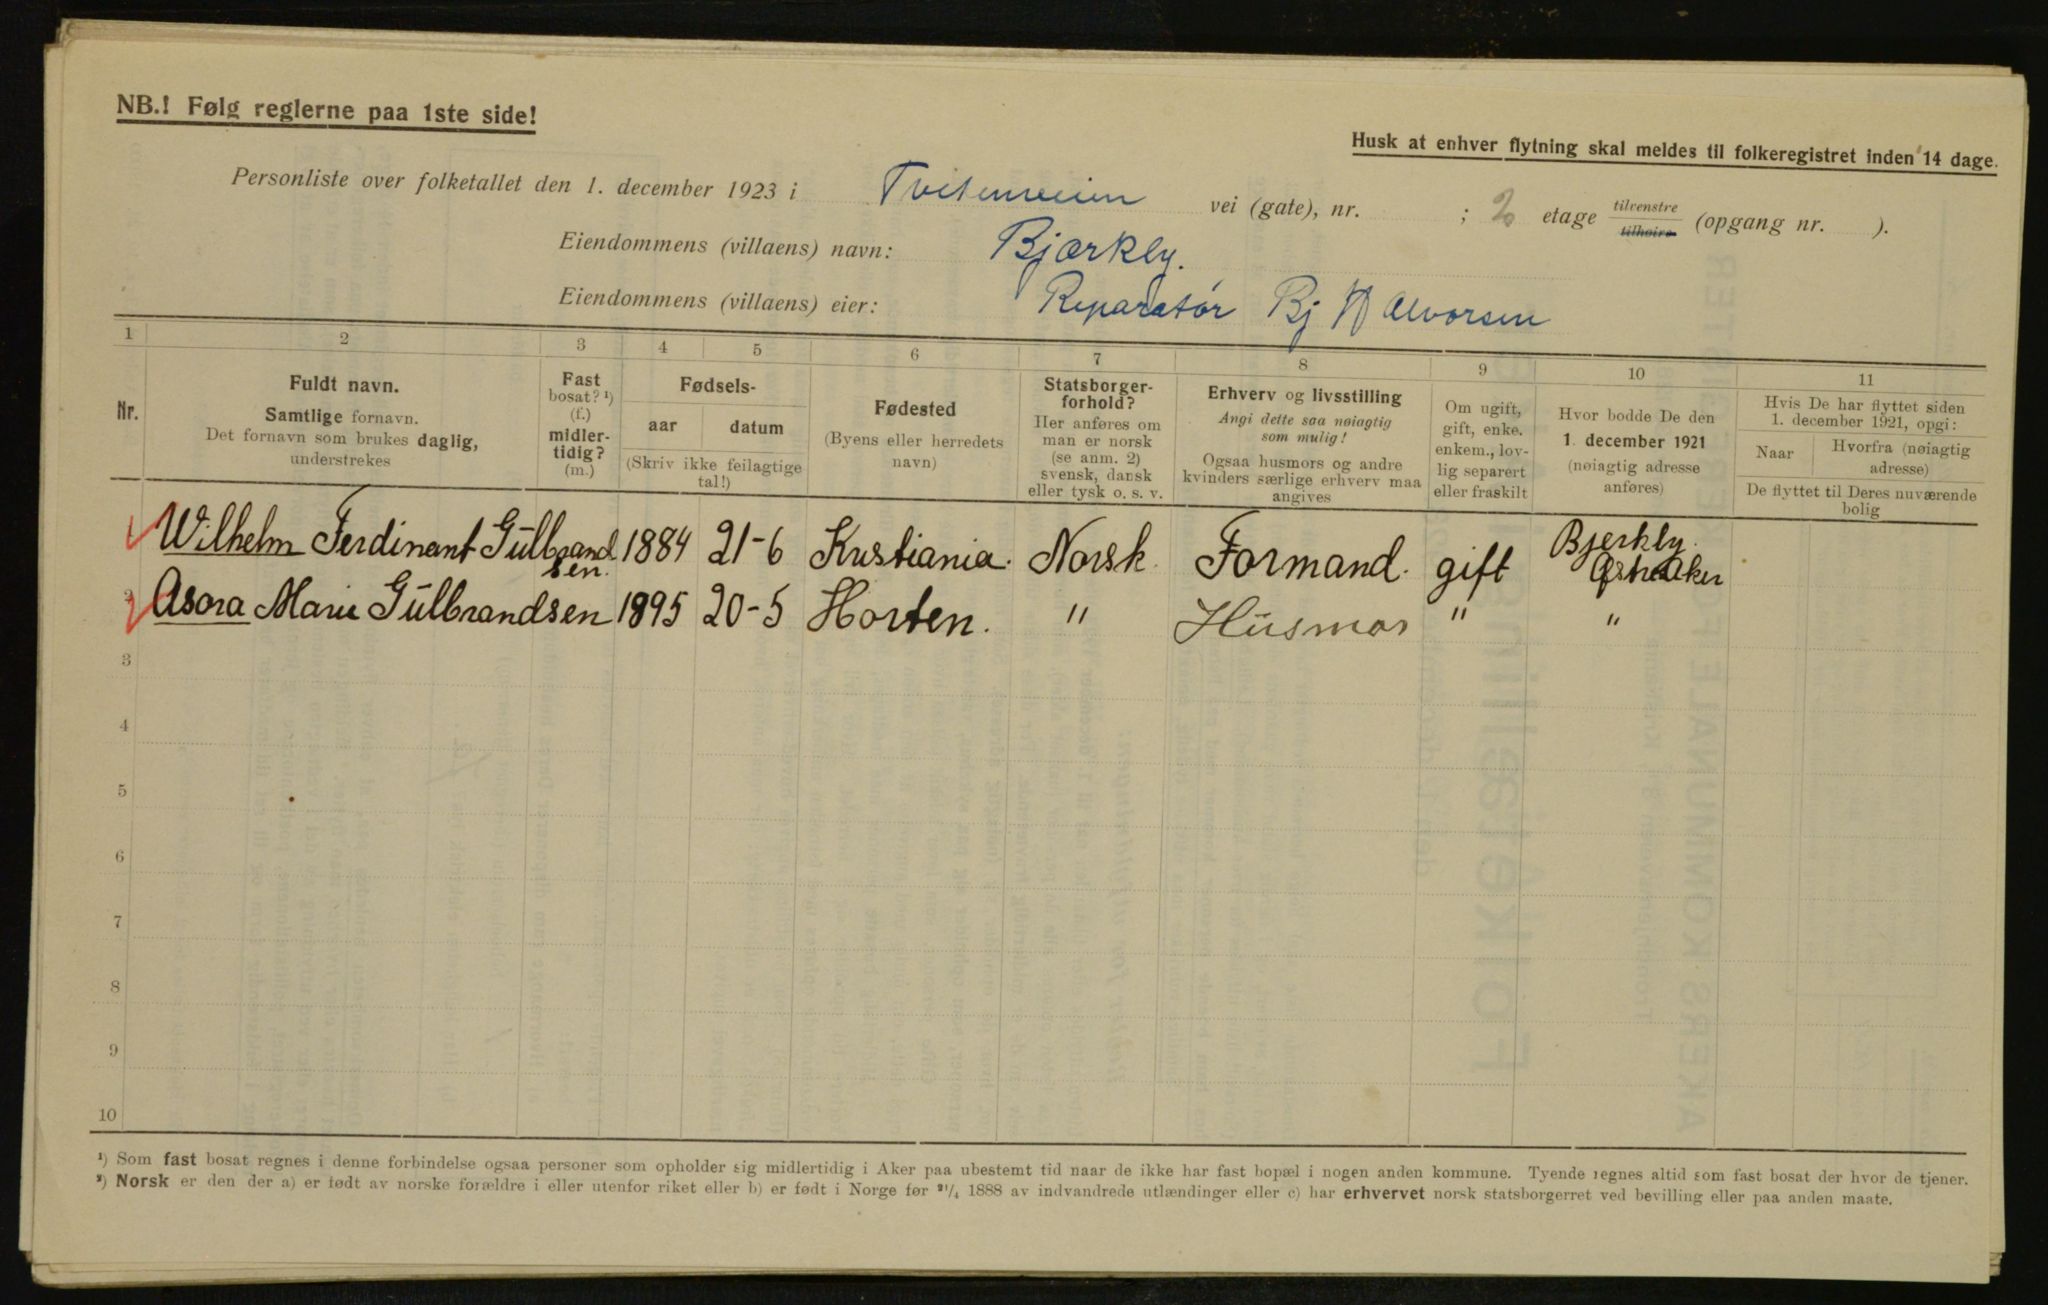 NB.! Følg reglerne paa 1ste side!
Husk at enhver flytning skal meldes til folkeregistret inden 14 dage.
Personliste over folketallet den 1. december 1923 i Tvetenveien vei (gate), nr. ; 2 etage tilvenstre tilhøire (opgang nr. ).
Eiendommens (villaens) navn: Bjærkly.
Eiendommens (villaens) eier: Reparatør Bj Halvorsen
1 2 3 4 5 6 7 8 9 10 11
Nr.
Fuldt navn.
Samtlige fornavn.
Det fornavn som brukes daglig,
understrekes
Fast
bosat? ¹)
(f.)
midler-
tidig?
(m.)
Fødsels-
aar datum
(Skriv ikke feilagtige
tal!)
Fødested
(Byens eller herredets
navn)
Statsborger-
forhold?
Her anføres om
man er norsk
(se anm. 2)
svensk, dansk
eller tysk o. s. v.
Erhverv og livsstilling
Angi dette saa nøiagtig
som mulig!
Ogsaa husmors og andre
kvinders særlige erhverv maa
angives
Om ugift,
gift, enke.
enkem., lov-
lig separert
eller fraskilt
Hvor bodde De den
1. december 1921
(nøiagtig adresse
anføres)
Hvis De har flyttet siden
1. december 1921, opgi:
Naar Hvorfra (nøiagtig
adresse)
De flyttet til Deres nuværende
bolig
Wilhelm Ferdinant Gülbrand 1884 21-6 Kristiania. Norsk. Formand. gift Bjerkly.
sen. Østre Aker
2 Asora Marie Gülbrandsen 1895 20-5 Horten. " Hüsmor " "
3
4
5
6
7
8
9
10
¹) Som fast bosat regnes i denne forbindelse ogsaa personer som opholder sig midlertidig i Aker paa ubestemt tid naar de ikke har fast bopæl i nogen anden kommune. Tyende regnes altid som fast bosat der hvor de tjener.
²) Norsk er den der a) er født av norske forældre i eller utenfor riket eller b) er født i Norge før ²¹/₄ 1888 av indvandrede utlændinger eller c) har erhvervet norsk statsborgerret ved bevilling eller paa anden maate.